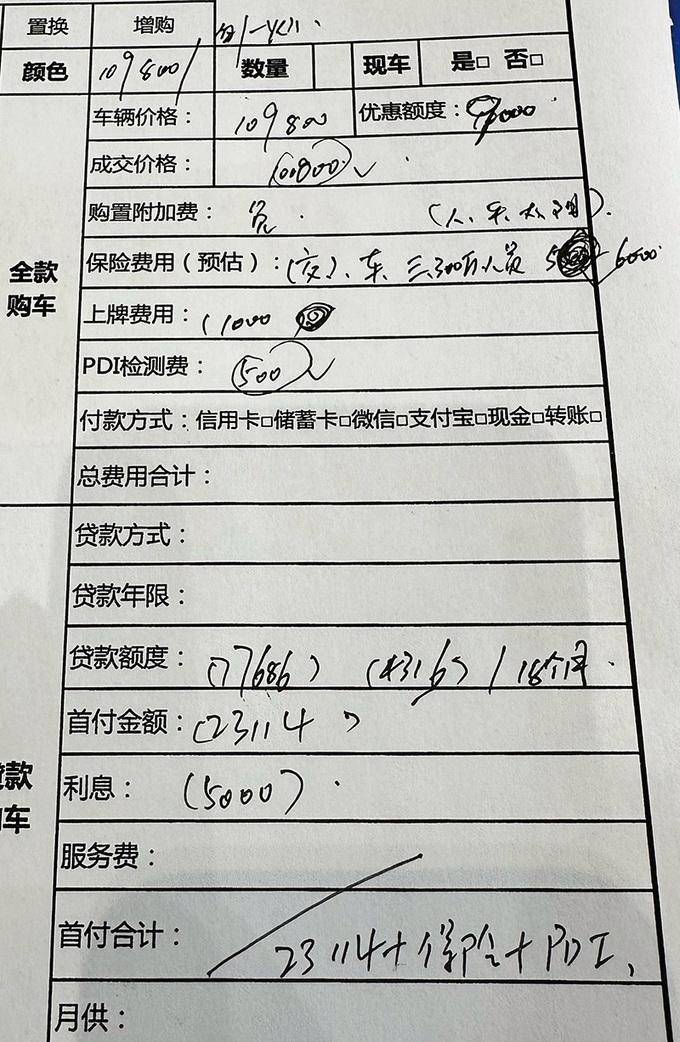 置换 增购
颜色 109800/ 数量 现车 是□ 否□
车辆价格： 109800 优惠额度：9000
成交价格： (100800)
全款购车
购置附加费： 免
保险费用（预估）：(交)、车、三300万人员 6000
上牌费用： (1000
PDI检测费： (500)
付款方式：信用卡□储蓄卡□微信□支付宝□现金□转账□
总费用合计：
贷款方式：
贷款年限：
贷款额度： (77686) (4316) / 18个月
首付金额： (23114)
贷款
车
利息： (5000)
服务费：
首付合计： 23114+保险+PDI
月供：